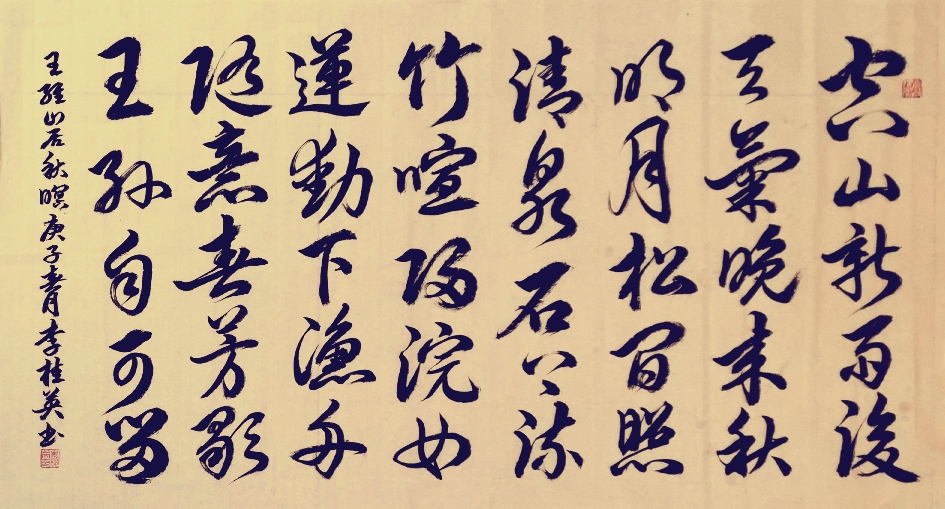 空山新雨後
天氣晚来秋
明月松间照
清泉石上流
竹喧归浣女
蓮動下漁舟
随意春芳歇
王孙自可留
王維山居秋暝庚子春月李桂英书